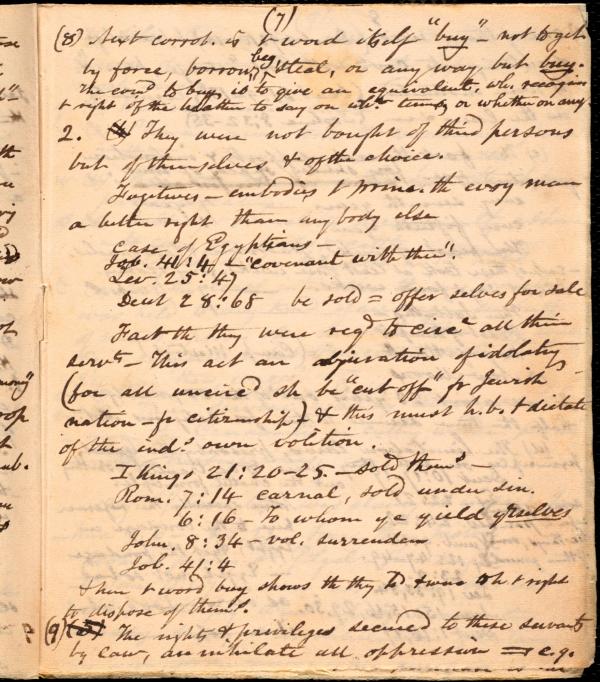 (7)
(8) Next corrob. is t word itself "buy" - not to get
by force, borrow, beg, steal, or any way but buy.
The com'd to buy, is to give an equivalent, wh. recognizes
t right of the heathen to say on wht terms, or whether on any.
2. They were not bought of third persons
but of themselves & of the choice.
Fugitives - embodies t princ. th every man
a better right than anybody else
Case of Egyptians -
Job. 41:4 - "covenant with thee".
Lev. 25:47
Deut 28:68 be sold = offer selves for sale
Fact th they were reqd to circ. all their
servts - This act an abjuration of idolatry
(for all uncircd sh be "cut off" fr Jewish
nation - fr citizenship) & this must h.b. t dictate
of the inds own volition.
I Kings 21:20-25. - sold thems -
Rom. 7:14 carnal, sold under sin.
6:16 To whom ye yield yrselves
John. 8:34 - vol. surrender
Job. 41:4
then t word buy shows th thy hd t right
to dispose of thems.
(9) The rights & privileges secured to these servants
by law, annihilate all oppression = e.g.